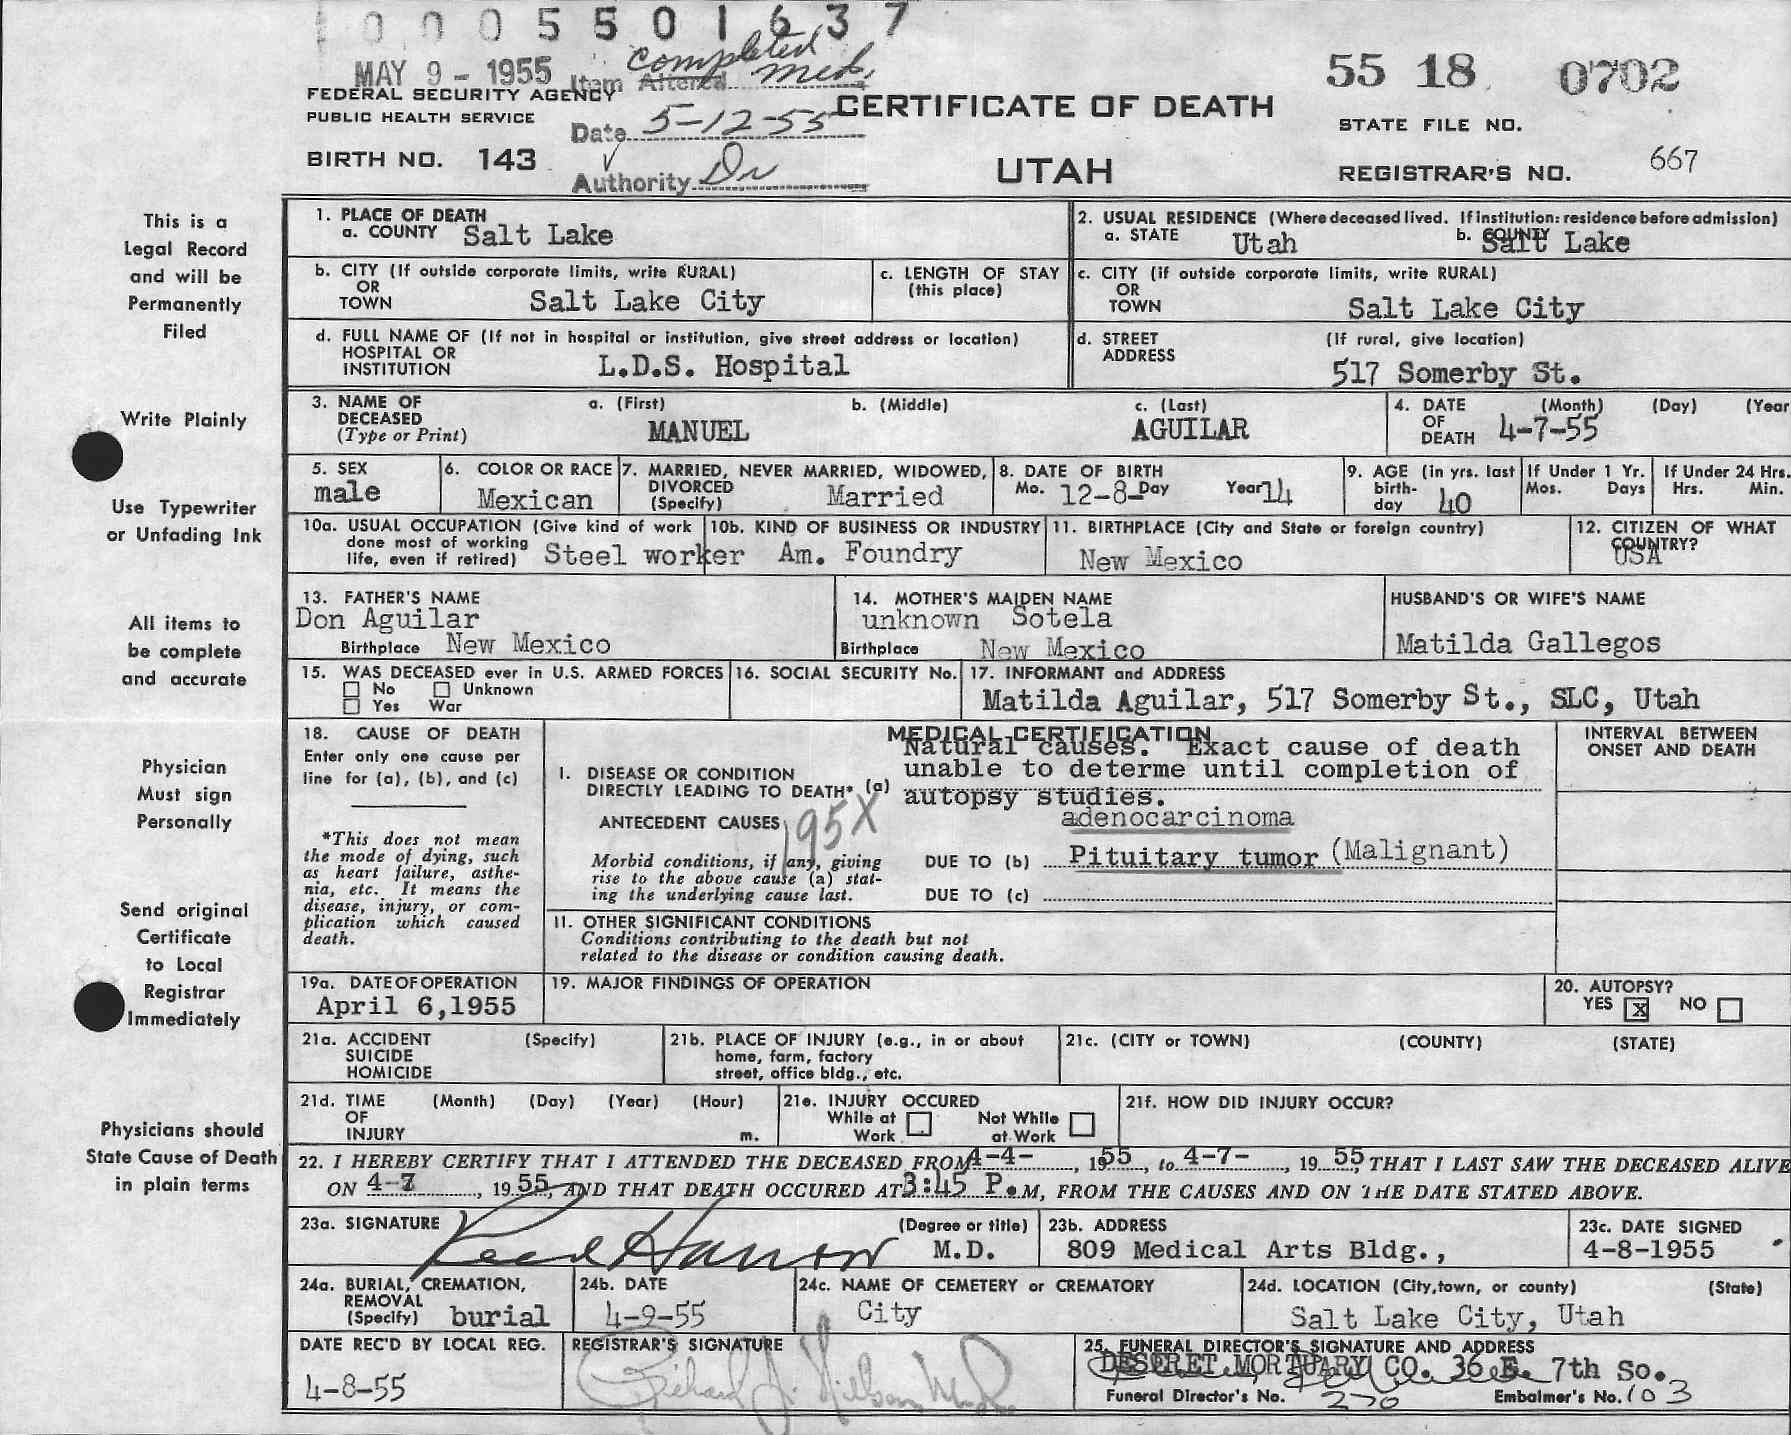 0005501637
MAY 9 - 1955
Item Altered completed med.
FEDERAL SECURITY AGENCY
PUBLIC HEALTH SERVICE
Date 5-12-55
BIRTH NO. 143
Authority Dr
CERTIFICATE OF DEATH
UTAH
55 18 0702
STATE FILE NO.
REGISTRAR'S NO. 667
This is a
Legal Record
and will be
Permanently
Filed
Write Plainly
Use Typewriter
or Unfading Ink
All items to
be complete
and accurate
Physician
Must sign
Personally
Send original
Certificate
to Local
Registrar
Immediately
Physicians should
State Cause of Death
in plain terms
1. PLACE OF DEATH
a. COUNTY Salt Lake
2. USUAL RESIDENCE (Where deceased lived. If institution: residence before admission)
a. STATE Utah b. COUNTY Salt Lake
b. CITY (If outside corporate limits, write RURAL)
OR
TOWN Salt Lake City
c. LENGTH OF STAY
(this place)
c. CITY (if outside corporate limits, write RURAL)
OR
TOWN Salt Lake City
d. FULL NAME OF (If not in hospital or institution, give street address or location)
HOSPITAL OR
INSTITUTION L.D.S. Hospital
d. STREET (If rural, give location)
ADDRESS
517 Somerby St.
3. NAME OF DECEASED
(Type or Print)
a. (First) MANUEL
b. (Middle)
c. (Last) AGUILAR
4. DATE OF DEATH (Month) (Day) (Year
4-7-55
5. SEX
male
6. COLOR OR RACE
Mexican
7. MARRIED, NEVER MARRIED, WIDOWED,
DIVORCED
(Specify) Married
8. DATE OF BIRTH
Mo. 12-8- Day Year 14
9. AGE (in yrs. last
birth-
day 40
If Under 1 Yr.
Mos. Days
If Under 24 Hrs.
Hrs. Min.
10a. USUAL OCCUPATION (Give kind of work
done most of working
life, even if retired) Steel worker
10b. KIND OF BUSINESS OR INDUSTRY
Am. Foundry
11. BIRTHPLACE (City and State or foreign country)
New Mexico
12. CITIZEN OF WHAT
COUNTRY?
USA
13. FATHER'S NAME
Don Aguilar
Birthplace New Mexico
14. MOTHER'S MAIDEN NAME
unknown Sotela
Birthplace New Mexico
HUSBAND'S OR WIFE'S NAME
Matilda Gallegos
15. WAS DECEASED ever in U.S. ARMED FORCES
No Unknown
Yes War
16. SOCIAL SECURITY No.
17. INFORMANT and ADDRESS
Matilda Aguilar, 517 Somerby St., SLC, Utah
18. CAUSE OF DEATH
Enter only one cause per
line for (a), (b), and (c)
*This does not mean
the mode of dying, such
as heart failure, asthe-
nia, etc. It means the
disease, injury, or com-
plication which caused
death.
MEDICAL CERTIFICATION
I. DISEASE OR CONDITION
DIRECTLY LEADING TO DEATH* (a)
Natural causes. Exact cause of death
unable to determe until completion of
autopsy studies.
ANTECEDENT CAUSES 195X
adenocarcinoma
Morbid conditions, if any, giving
rise to the above cause (a) stat-
ing the underlying cause last.
DUE TO (b) Pituitary tumor (Malignant)
DUE TO (c)
II. OTHER SIGNIFICANT CONDITIONS
Conditions contributing to the death but not
related to the disease or condition causing death.
INTERVAL BETWEEN
ONSET AND DEATH
19a. DATE OF OPERATION
April 6,1955
19. MAJOR FINDINGS OF OPERATION
20. AUTOPSY?
YES x NO
21a. ACCIDENT (Specify)
SUICIDE
HOMICIDE
21b. PLACE OF INJURY (e.g., in or about
home, farm, factory
street, office bldg., etc.
21c. (CITY or TOWN) (COUNTY) (STATE)
21d. TIME (Month) (Day) (Year) (Hour)
OF
INJURY m.
21e. INJURY OCCURED
While at Work Not While at Work
21f. HOW DID INJURY OCCUR?
22. I HEREBY CERTIFY THAT I ATTENDED THE DECEASED FROM 4-4-, 1955, to 4-7-, 1955, THAT I LAST SAW THE DECEASED ALIVE
ON 4-7, 1955, AND THAT DEATH OCCURED AT 3:45 P.M, FROM THE CAUSES AND ON THE DATE STATED ABOVE.
23a. SIGNATURE (Degree or title)
M.D.
23b. ADDRESS
809 Medical Arts Bldg.,
23c. DATE SIGNED
4-8-1955
24a. BURIAL, CREMATION,
REMOVAL
(Specify) burial
24b. DATE
4-9-55
24c. NAME OF CEMETERY or CREMATORY
City
24d. LOCATION (City, town, or county) (State)
Salt Lake City, Utah
DATE REC'D BY LOCAL REG.
4-8-55
REGISTRAR'S SIGNATURE
Richard J. Nielson
25. FUNERAL DIRECTOR'S SIGNATURE AND ADDRESS
DESERET MORTUARY CO. 36 E. 7th So.
Funeral Director's No. 270 Embalmer's No. 103